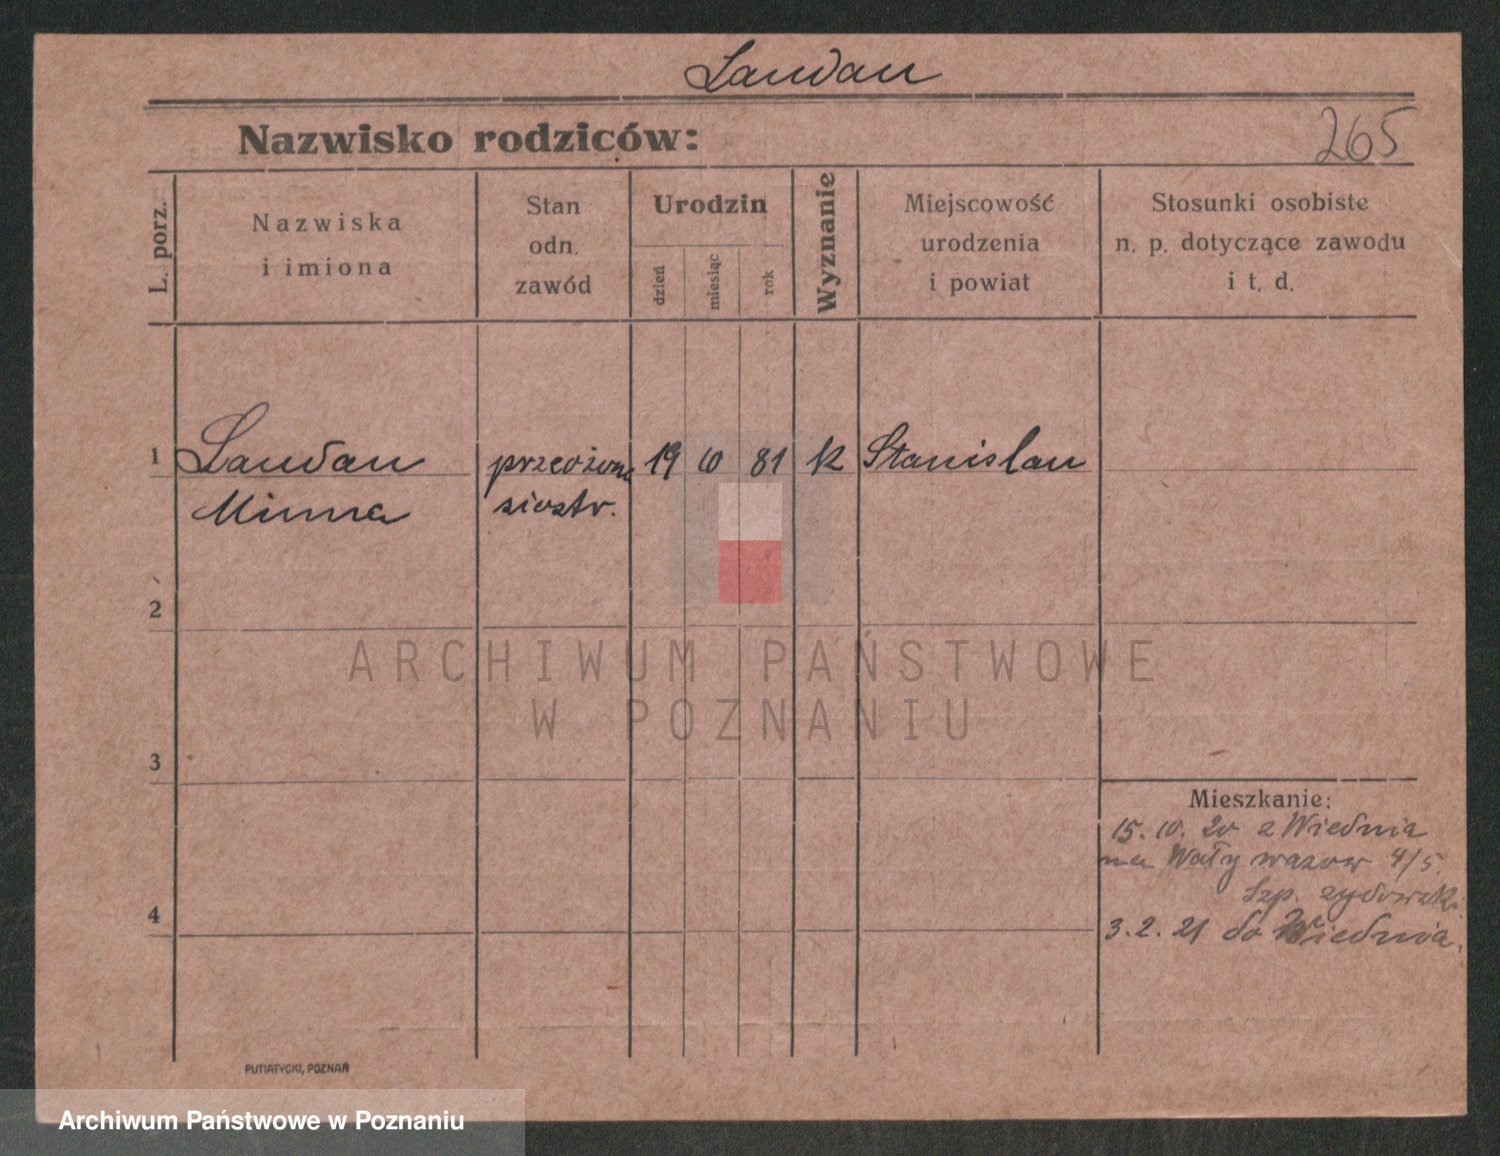 Landau
Nazwisko rodziców:
265
L. porz.
Nazwiska
i imiona
Stan
odn.
zawód
Urodzin
dzień
miesiąc
rok
Wyznanie
Miejscowość
urodzenia
i powiat
Stosunki osobiste
n. p. dotyczące zawodu
i t. d.
1
Landau
Minna
siostr.
19
10
81
k
Stanislau
2
3
4
Mieszkanie:
15. 10. 20 z Wiednia
na Wały wazow 4/5.
Szp. zydowsk.
3. 2. 21 do Wiednia.
PUTIATYCKI, POZNAŃ
ARCHIWUM PAŃSTWOWE
W POZNANIU
Archiwum Państwowe w Poznaniu